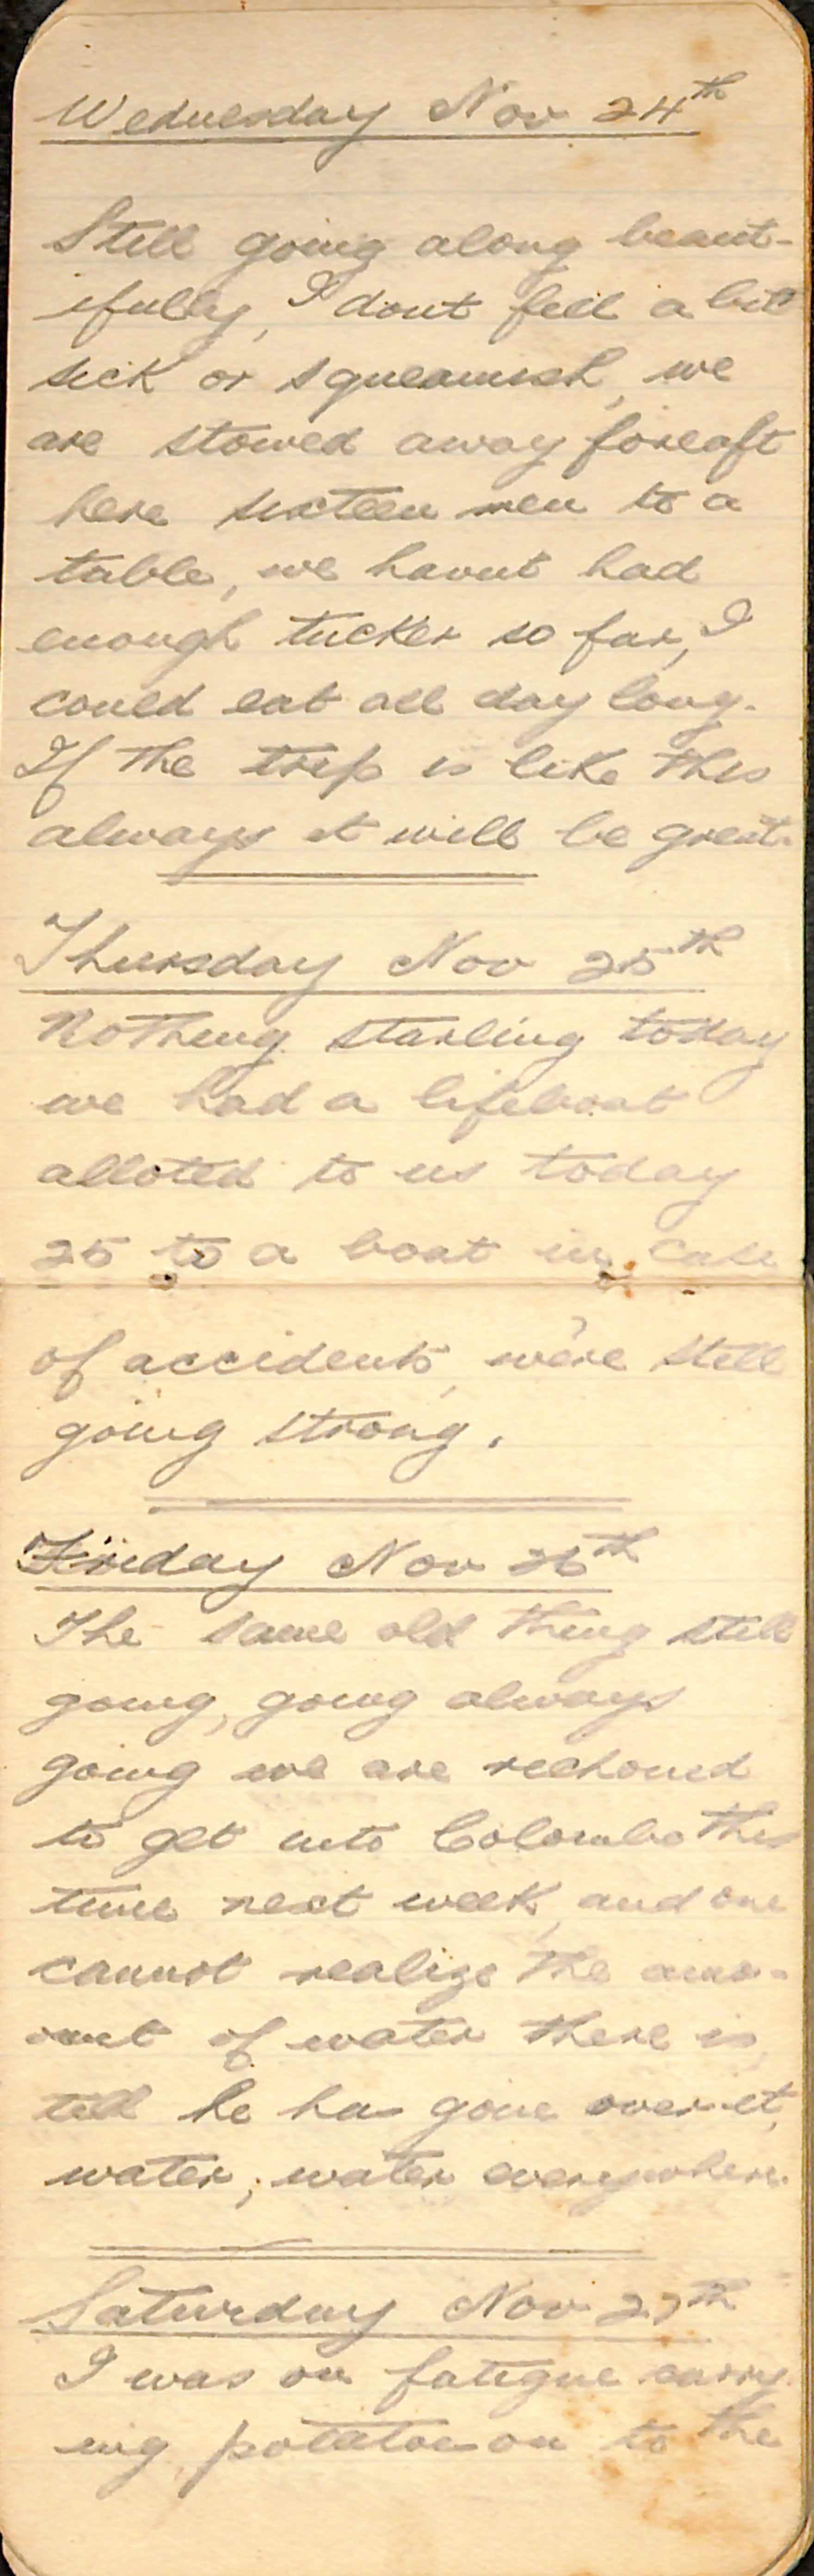 Wednesday Nov 24th
Still going along beaut-
ifully, I dont feel a bit
sick or squeamish, we
are stowed away foreaft
here sixteen men to a
table, we havnt had
enough tucker so far, I
could eat all day long.
If the trip is like this
always it will be great.
Thursday Nov 25th
Nothing starling today
we had a lifeboat
alloted to us today
25 to a boat in case
of accidents, we're still
going strong.
Friday Nov 26th
The same old thing still
going, going always
going we are reckoned
to get into Colombo this
time next week, and one
cannot realize the amo-
unt of water there is
till he has gone over it,
water, water everywhere.
Saturday Nov 27th
I was on fatigue carry
ing potatoes on to the